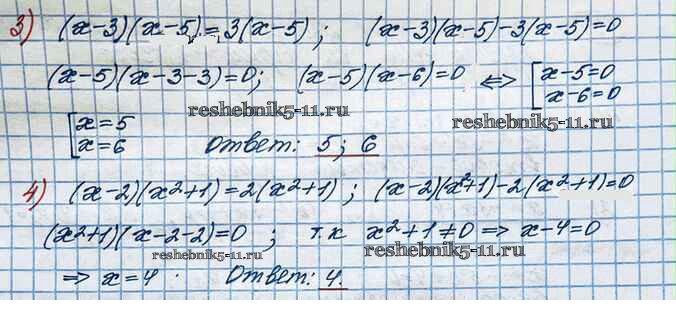 3) (x-3)(x-5)=3(x-5); (x-3)(x-5)-3(x-5)=0
(x-5)(x-3-3)=0; (x-5)(x-6)=0 <=> [x-5=0
x-6=0
reshebnik5-11.ru
reshebnik5-11.ru
[x=5
x=6 Ответ: 5; 6
4) (x-2)(x²+1)=2(x²+1); (x-2)(x²+1)-2(x²+1)=0
(x²+1)(x-2-2)=0; т.к x²+1≠0 => x-4=0
reshebnik5-11.ru
reshebnik5-11.ru
=> x=4. Ответ: 4.